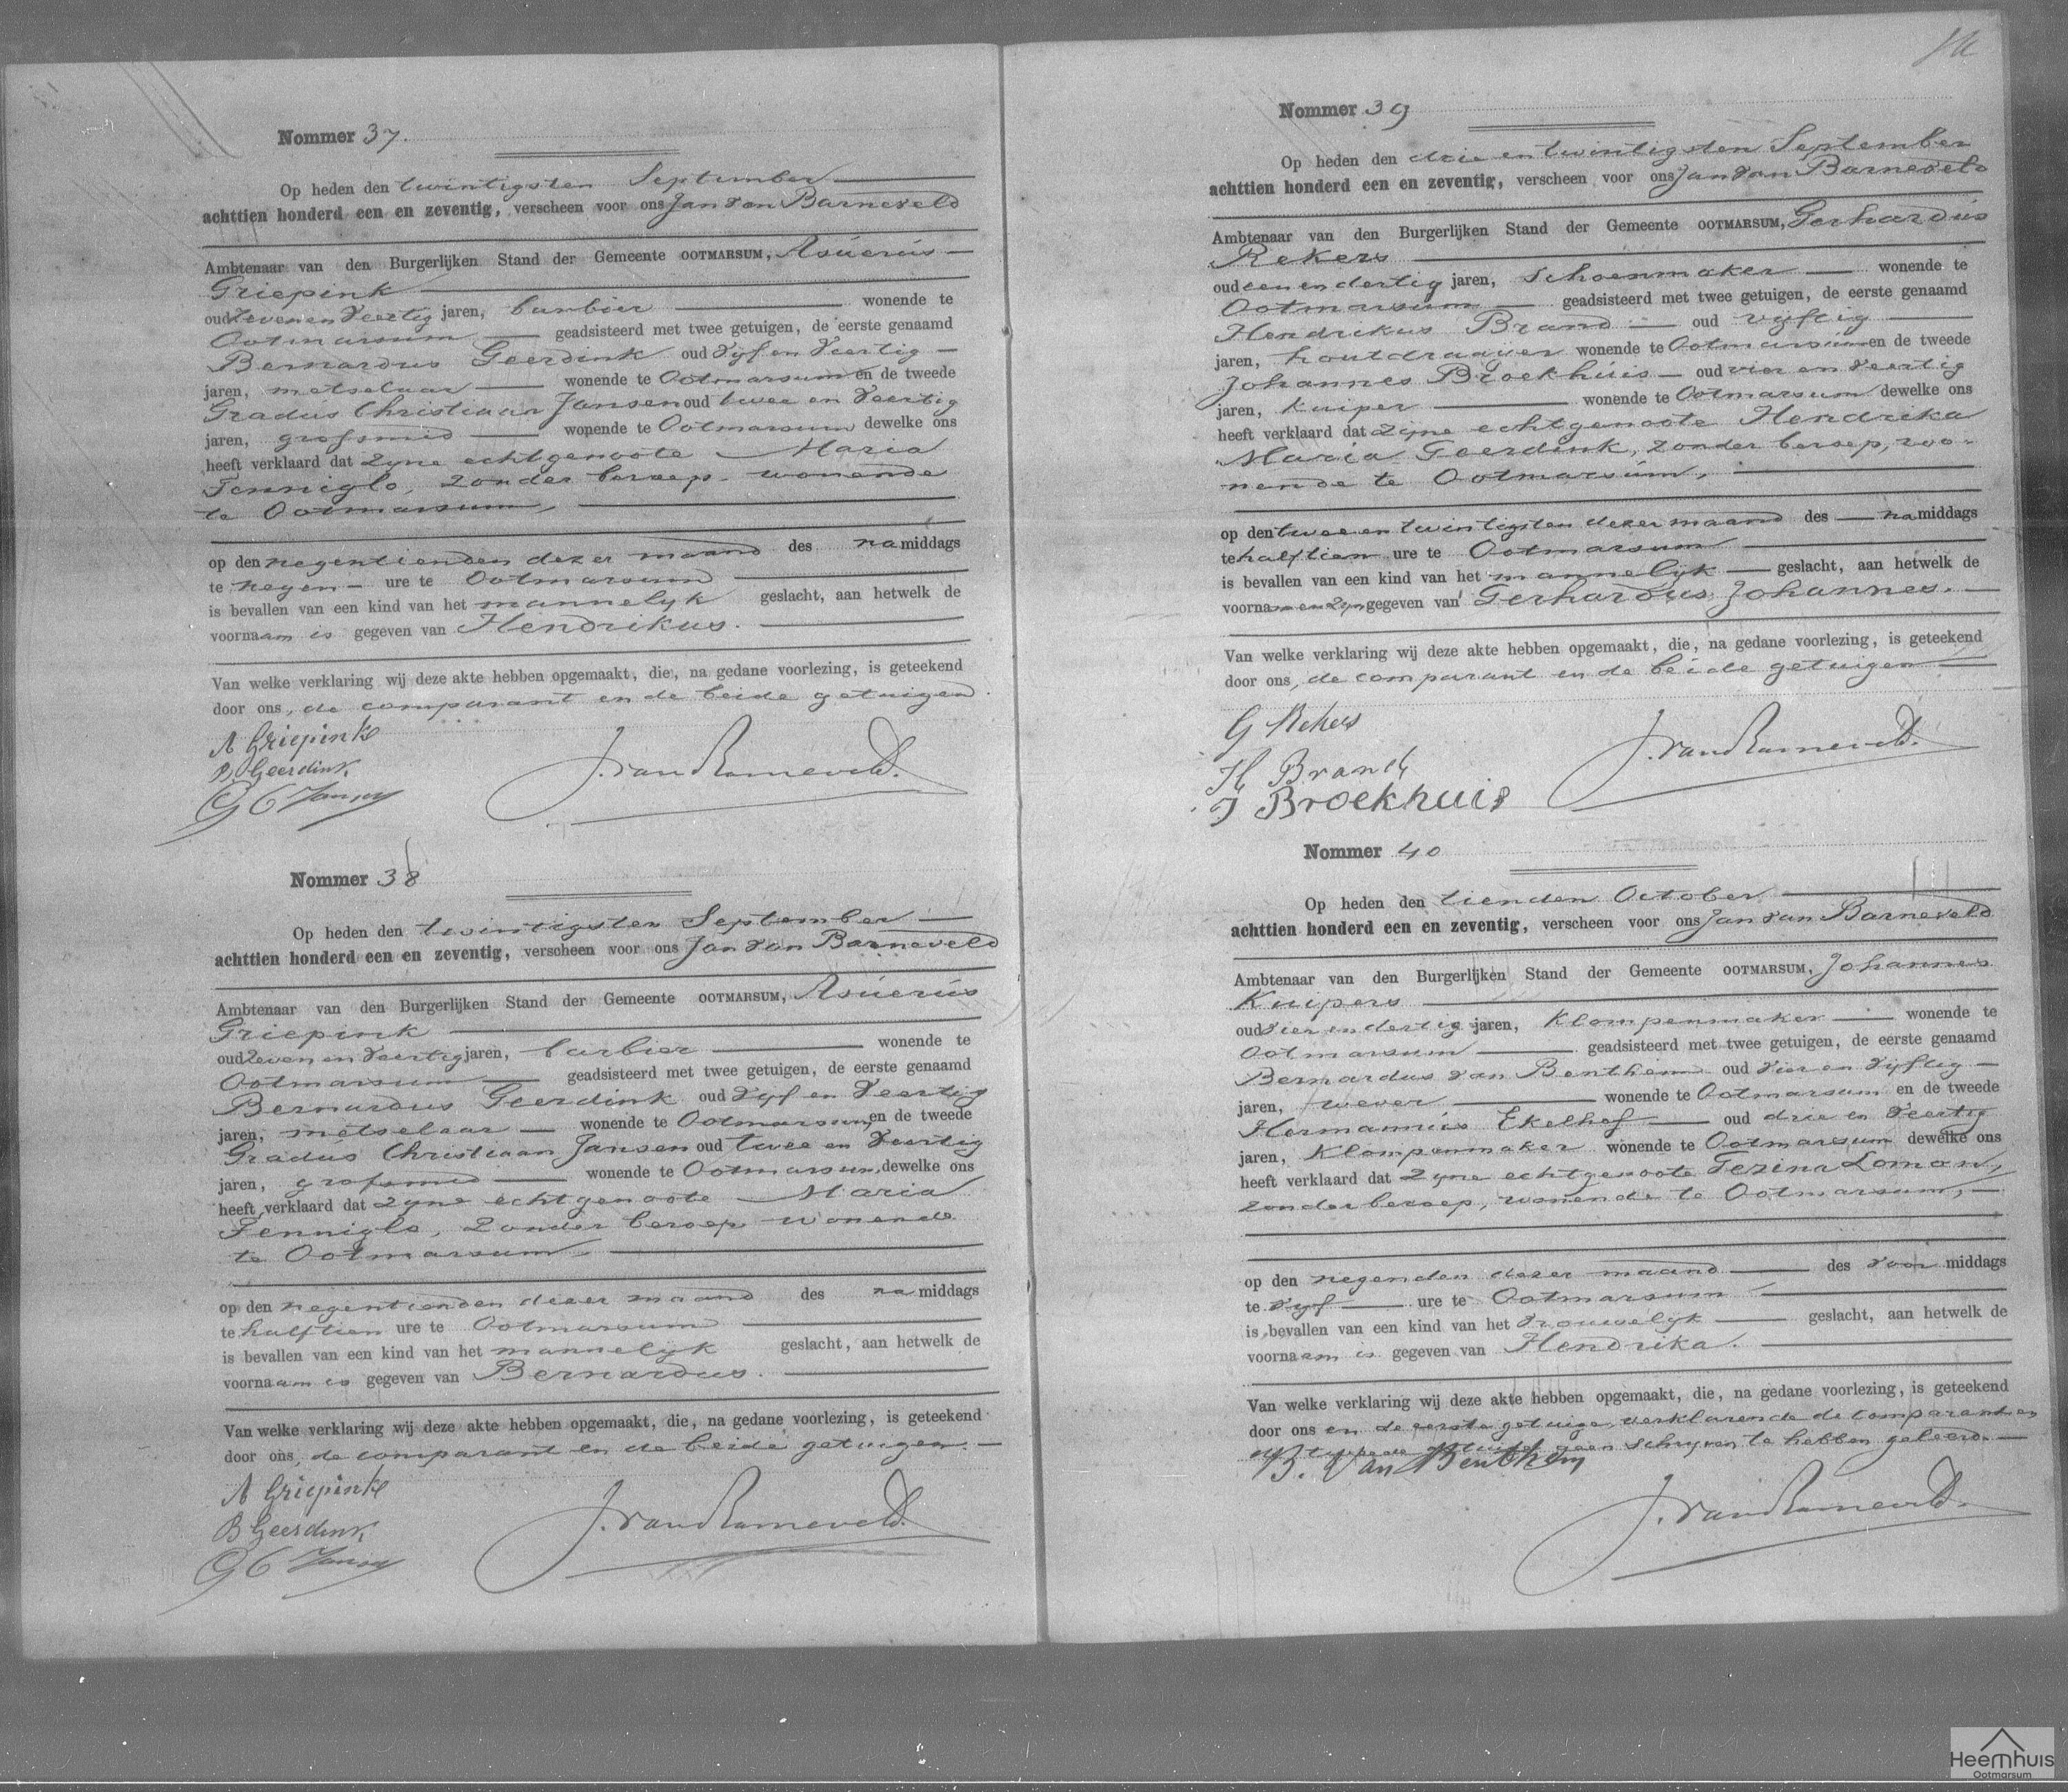 Nommer 37.
Op heden den twintigsten September
achttien honderd een en zeventig, verscheen voor ons Jan van Barneveld
Ambtenaar van den Burgerlijken Stand der Gemeente OOTMARSUM, Asuerus
Griepink
oud zeven en veertig jaren, barbier wonende te
Ootmarsum geadsisteerd met twee getuigen, de eerste genaamd
Bernardus Geerdink oud vyf en veertig
jaren, metselaar wonende te Ootmarsum en de tweede
Gradus Christiaan Jansen oud twee en veertig
jaren, grofsmid wonende te Ootmarsum dewelke ons
heeft verklaard dat zyne echtgenoote Maria
Fenniglo, zonder beroep wonende
te Ootmarsum,
op den negentienden dezer maand des namiddags
te negen ure te Ootmarsum
is bevallen van een kind van het mannelyk geslacht, aan hetwelk de
voornaam is gegeven van Hendrikus.
Van welke verklaring wij deze akte hebben opgemaakt, die, na gedane voorlezing, is geteekend
door ons, de comparant en de beide getuigen.
A Griepink
B. Geerdink
G C Jansen
J. van Barneveld.
Nommer 38
Op heden den twintigsten September
achttien honderd een en zeventig, verscheen voor ons Jan van Barneveld
Ambtenaar van den Burgerlijken Stand der Gemeente OOTMARSUM, Asuerus
Griepink
oud zeven en veertig jaren, barbier wonende te
Ootmarsum geadsisteerd met twee getuigen, de eerste genaamd
Bernardus Geerdink oud vyf en veertig
jaren, metselaar wonende te Ootmarsum en de tweede
Gradus Christiaan Jansen oud twee en veertig
jaren, grofsmid wonende te Ootmarsum, dewelke ons
heeft verklaard dat zyne echtgenoote Maria
Fenniglo, zonder beroep wonende
te Ootmarsum
op den negentienden dezer maand des namiddags
te half tien ure te Ootmarsum
is bevallen van een kind van het mannelyk geslacht, aan hetwelk de
voornaam is gegeven van Bernardus.
Van welke verklaring wij deze akte hebben opgemaakt, die, na gedane voorlezing, is geteekend
door ons, de comparant en de beide getuigen.
A Griepink
B Geerdink
G C Jansen
J. van Barneveld.
Nommer 39
Op heden den drie en twintigsten September
achttien honderd een en zeventig, verscheen voor ons Jan van Barneveld
Ambtenaar van den Burgerlijken Stand der Gemeente OOTMARSUM, Gerhardus
Rekers
oud een en dertig jaren, schoenmaker wonende te
Ootmarsum geadsisteerd met twee getuigen, de eerste genaamd
Hendrikus Brand oud vyftig
jaren, houtdraayer wonende te Ootmarsum en de tweede
Johannes Broekhuis oud vier en veertig
jaren, kuiper wonende te Ootmarsum dewelke ons
heeft verklaard dat zyne echtgenoote Hendrika
Maria Geerdink, zonder beroep, wo-
nende te Ootmarsum,
op den twee en twintigsten dezer maand des namiddags
te half tien ure te Ootmarsum
is bevallen van een kind van het mannelyk geslacht, aan hetwelk de
voornamen zyn gegeven van Gerhardus Johannes.
Van welke verklaring wij deze akte hebben opgemaakt, die, na gedane voorlezing, is geteekend
door ons, de comparant en de beide getuigen
G Rekers
H Brand
J Broekhuis
J. van Barneveld.
Nommer 40
Op heden den tienden October
achttien honderd een en zeventig, verscheen voor ons Jan van Barneveld
Ambtenaar van den Burgerlijken Stand der Gemeente OOTMARSUM, Johannes
Kuipers
oud vier en dertig jaren, klompenmaker wonende te
Ootmarsum geadsisteerd met twee getuigen, de eerste genaamd
Bernardus van Benthem oud vier en vyftig
jaren, wever wonende te Ootmarsum en de tweede
Hermannus Ekelhof oud drie en veertig
jaren, klompenmaker wonende te Ootmarsum dewelke ons
heeft verklaard dat zyne echtgenoote Fezina Loman,
zonder beroep, wonende te Ootmarsum,
op den negenden dezer maand des voormiddags
te vyf ure te Ootmarsum
is bevallen van een kind van het vrouwelyk geslacht, aan hetwelk de
voornaam is gegeven van Hendrika.
Van welke verklaring wij deze akte hebben opgemaakt, die, na gedane voorlezing, is geteekend
door ons en de eerste getuige, verklarende de comparant en
de tweede getuige geen schryven te hebben geleerd.
B. Van Benthem
J. van Barneveld.
Heemhuis
Ootmarsum